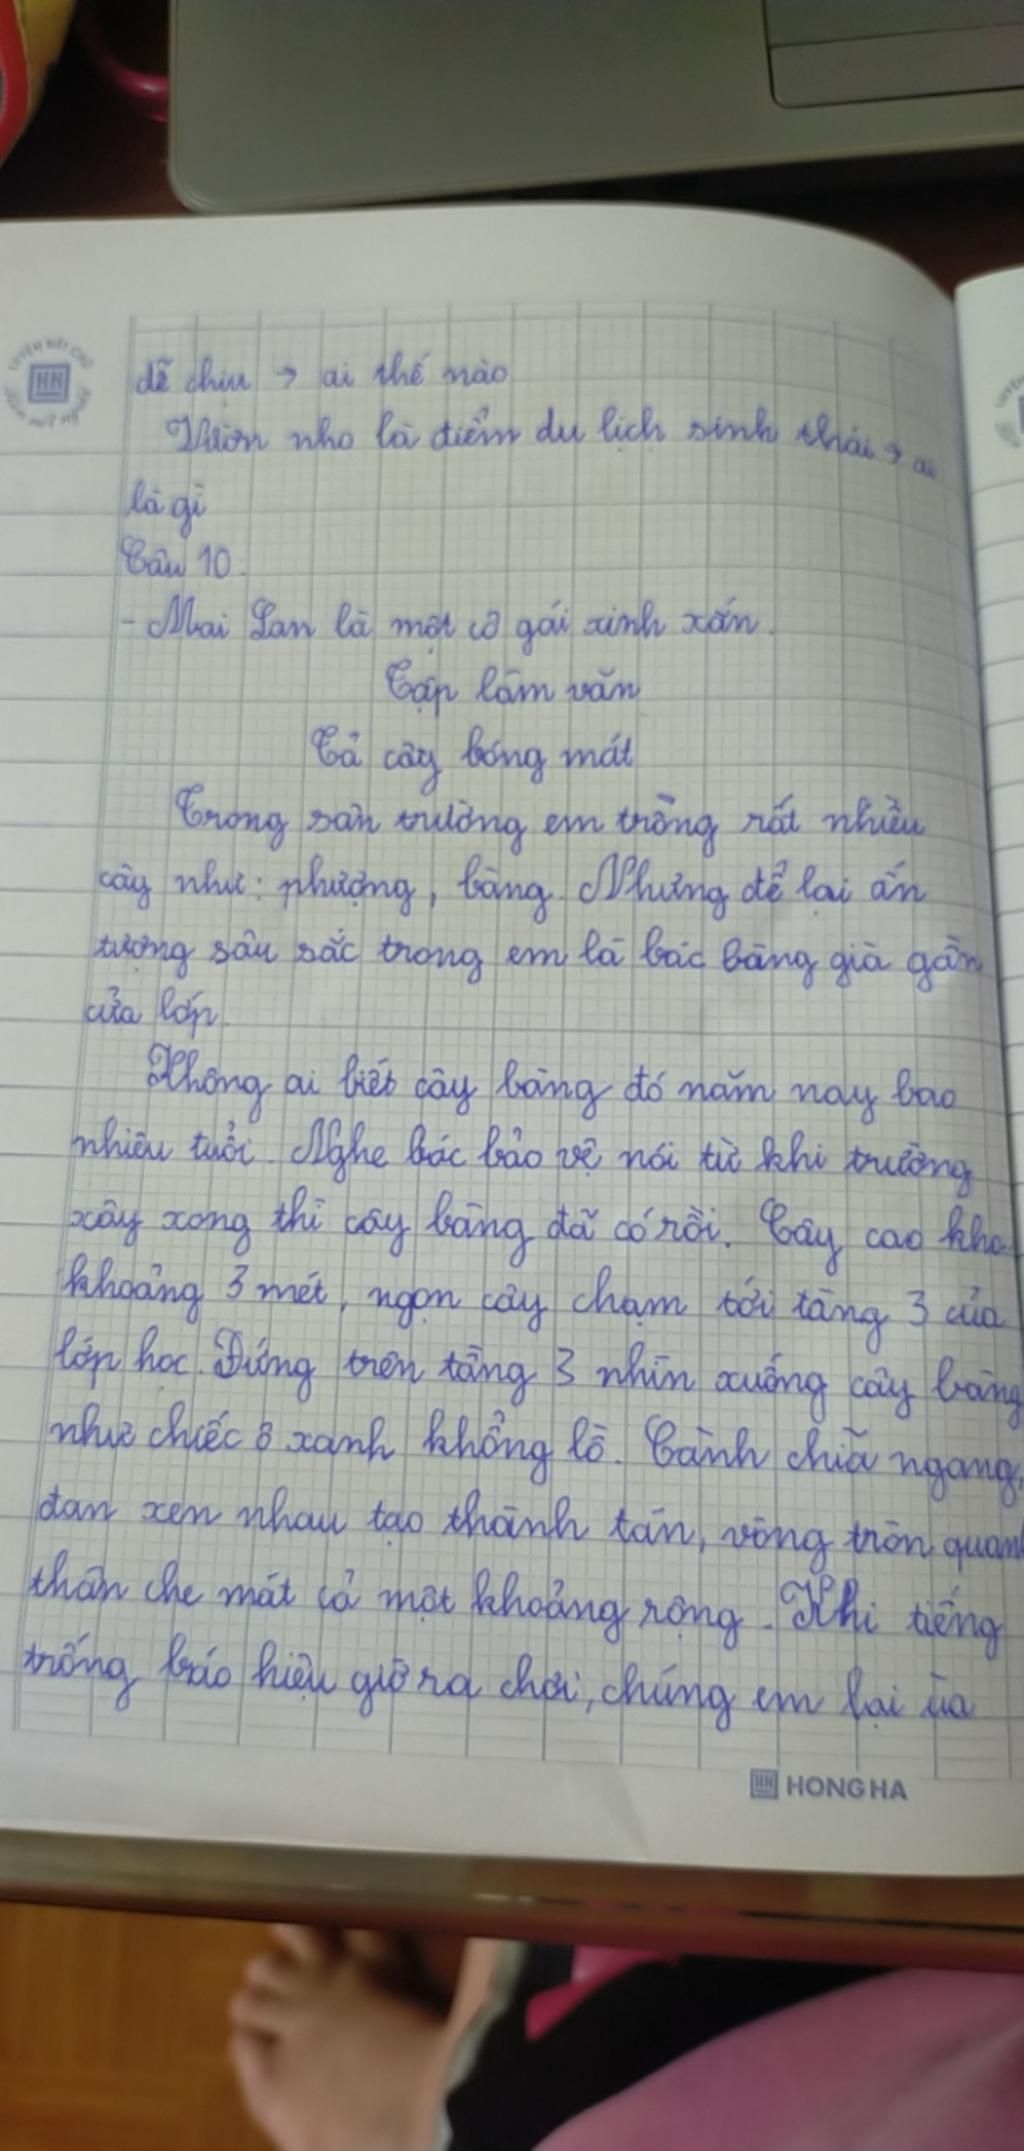 dễ chịu → ai thế nào
Vườn nho là điểm du lịch sinh thái → ai
là gì
Câu 10.
- Mai Lan là một cô gái xinh xắn.
Tập làm văn
Tả cây bóng mát
Trong sân trường em trồng rất nhiều
cây như: phượng, bàng. Nhưng để lại ấn
tượng sâu sắc trong em là bác bàng già gần
cửa lớp.
Không ai biết cây bàng đó năm nay bao
nhiêu tuổi. Nghe bác bảo vệ nói từ khi trường
xây xong thì cây bàng đã có rồi. Cây cao kho
khoảng 3 mét, ngọn cây chạm tới tầng 3 của
lớp học. Đứng trên tầng 3 nhìn xuống cây bàng
như chiếc ô xanh khổng lồ. Cành chĩa ngang,
đan xen nhau tạo thành tán, vòng tròn quanh
thân che mát cả một khoảng rộng. Khi tiếng
trống báo hiệu giờ ra chơi, chúng em lại ùa
HH HONG HA